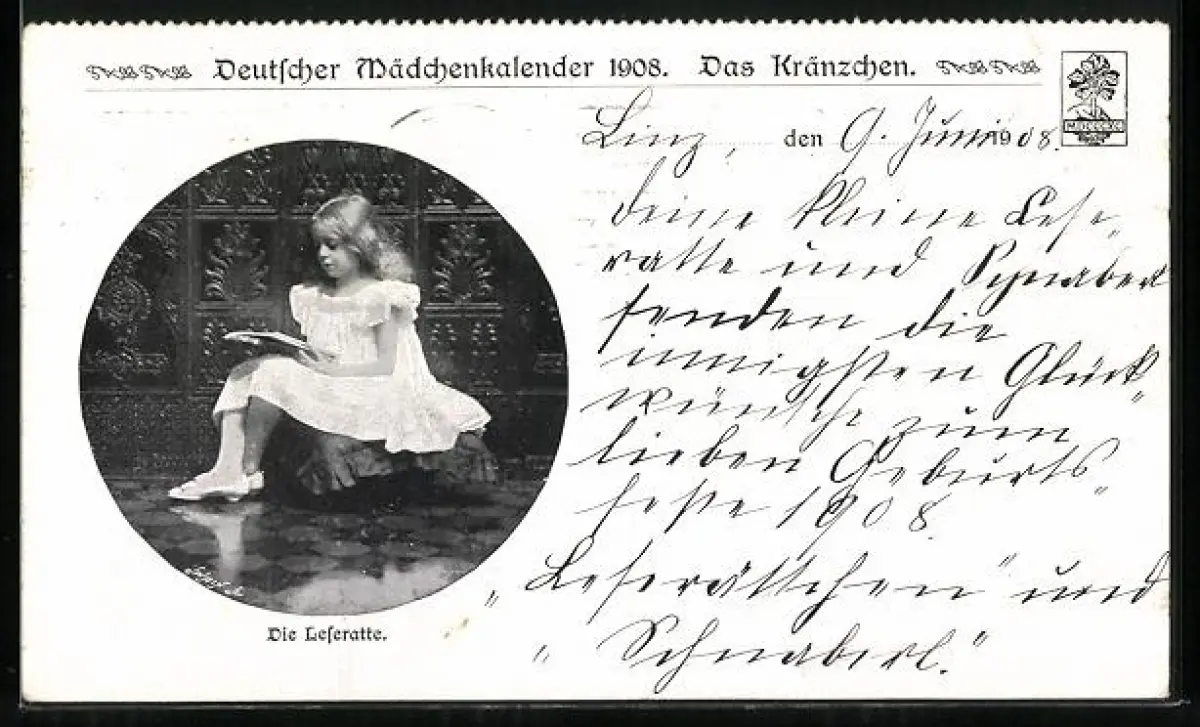 Deutscher Mädchenkalender 1908. Das Kränzchen.
Linz, den 9. Juni 1908.
Deine kleine Lese-
ratte und Schnaberl
senden die
innigsten Glück-
wünsche zum
lieben Geburts-
feste 1908.
"Leserättchen" und
"Schnaberl."
Die Leseratte.